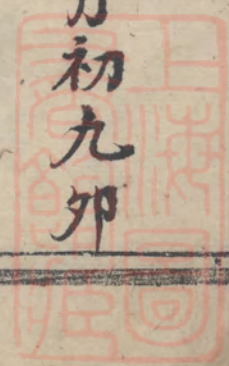 初九夘
上海圖
書館藏